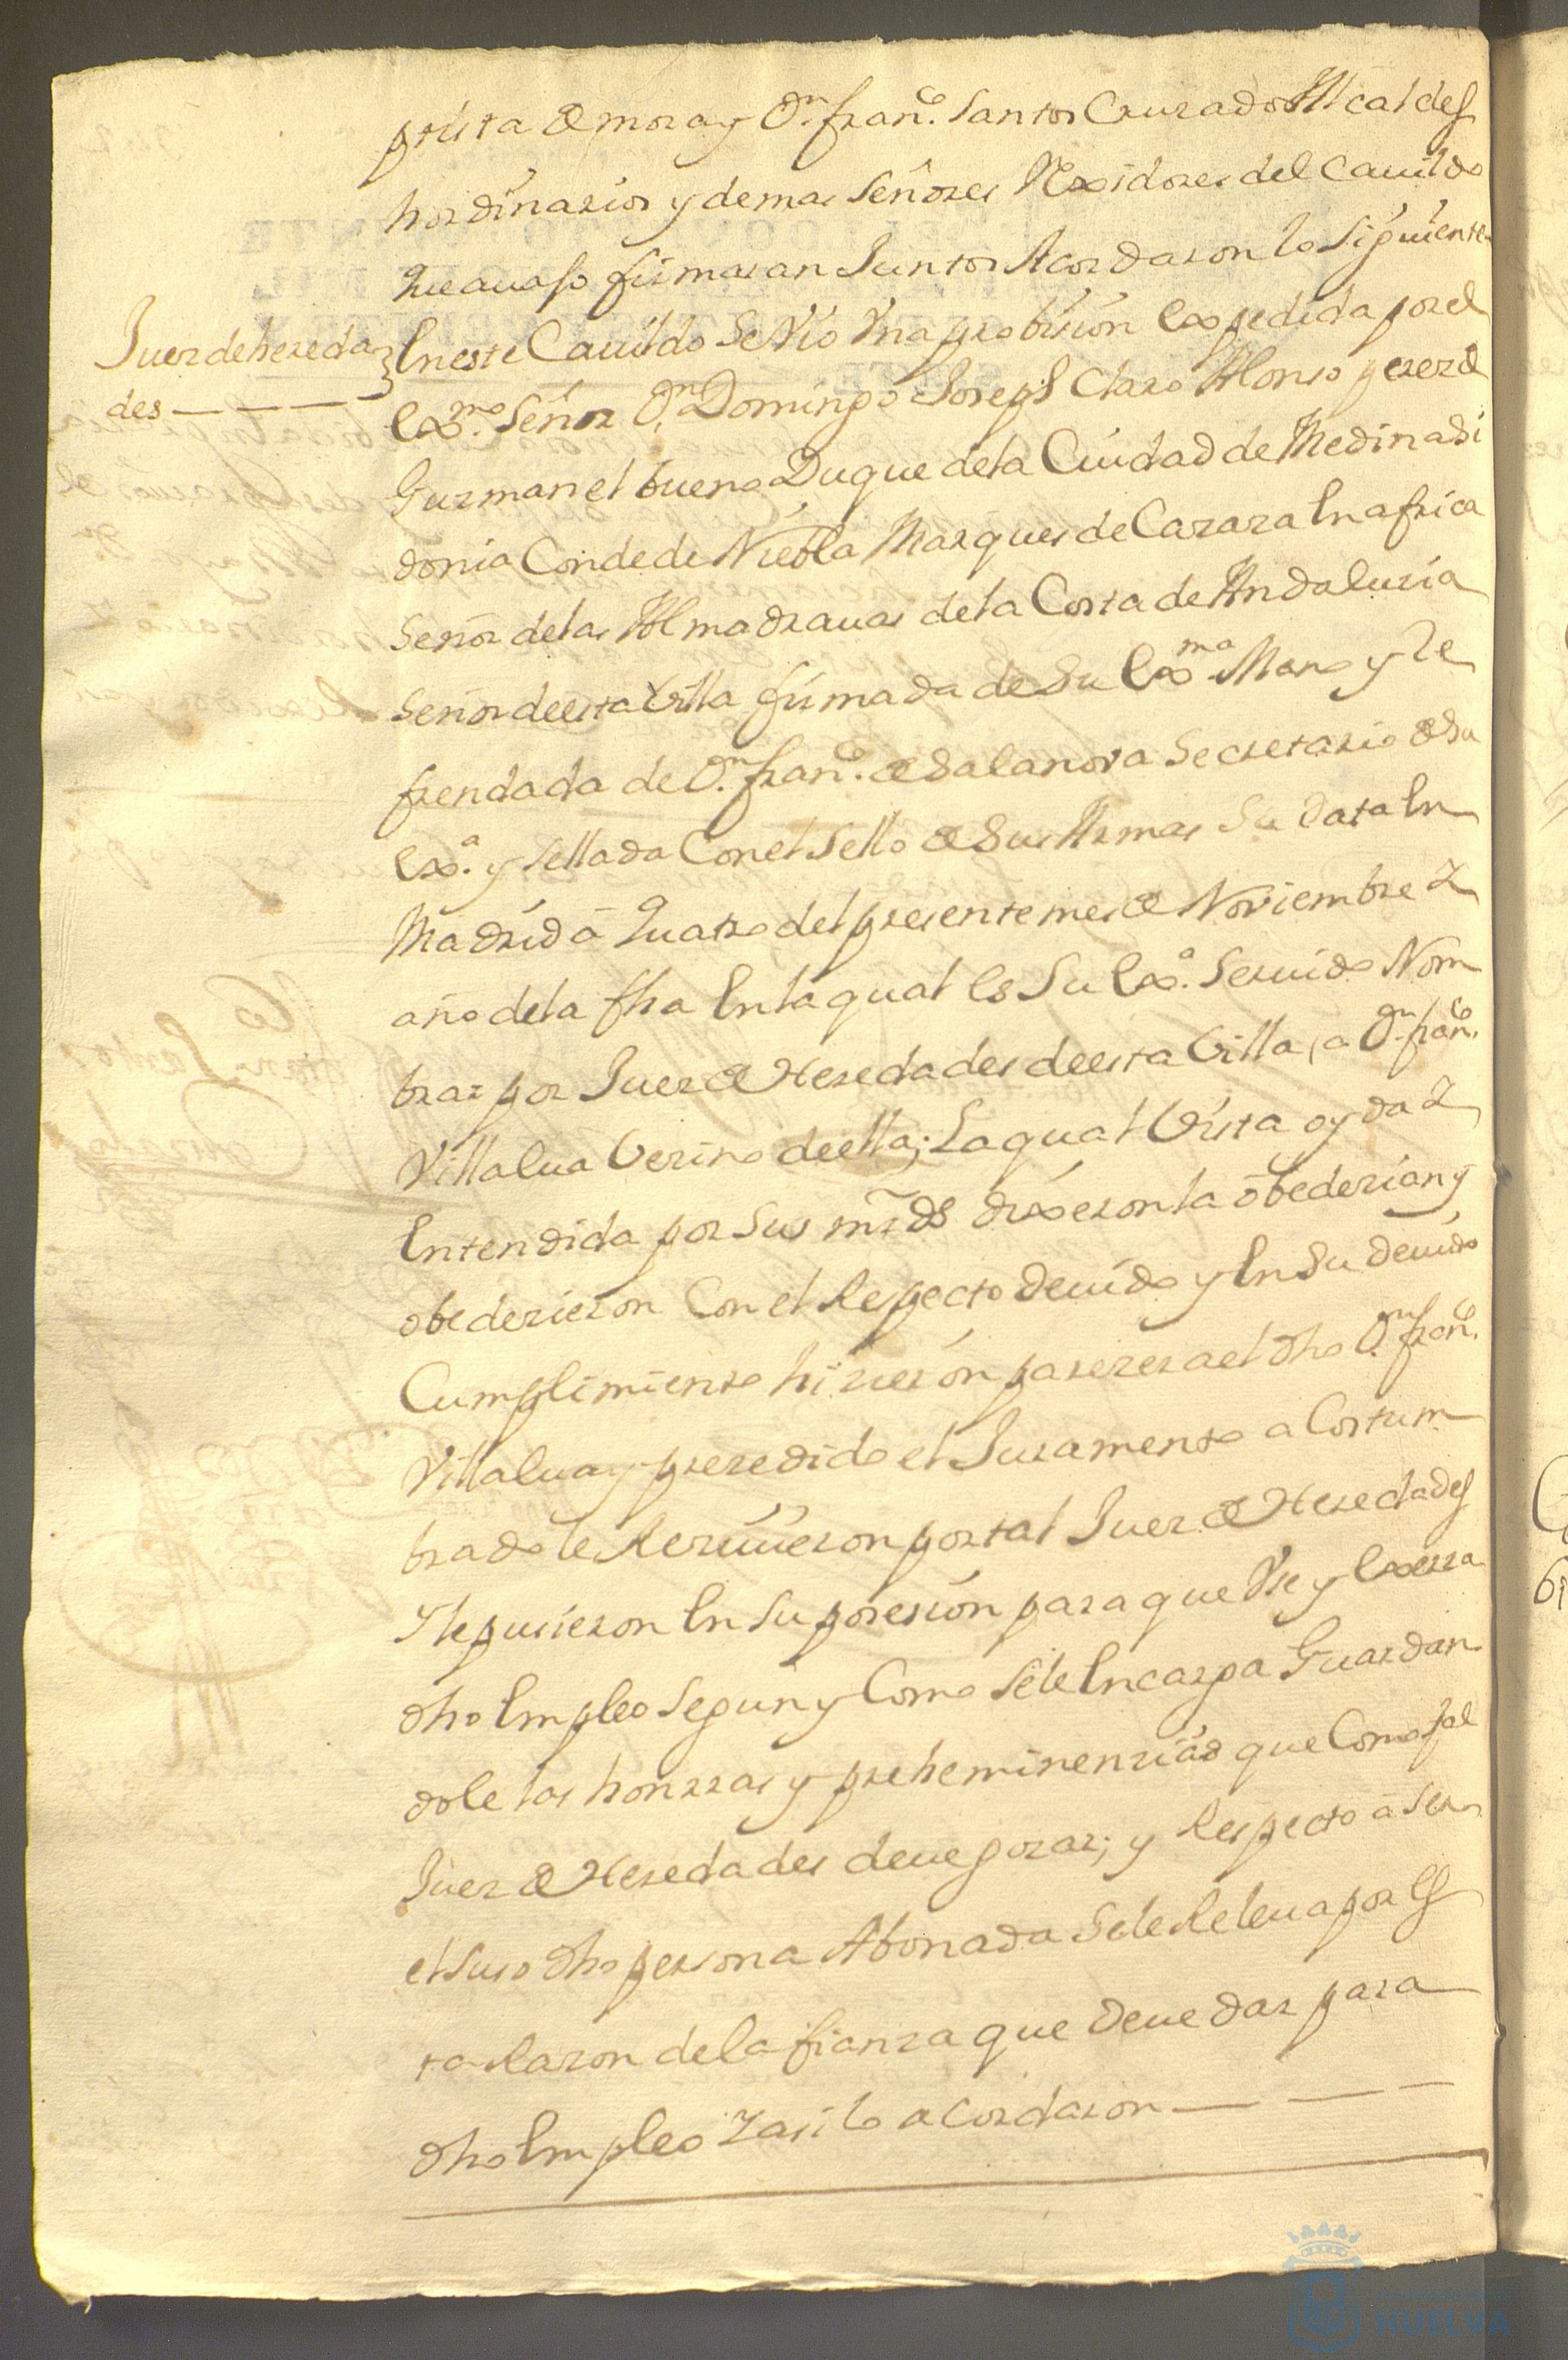 prieta de mora y Dn. franco. Santos Cruzado Alcaldes
hordinarios y demas Señores Rexidores del Cauildo
que auajo firmaran Juntos Acordaron lo Siguiente
Juez de hereda
des — — — —
En este Cauildo Se Vio Vna probision Expedida por el
Exmo. Señor Dn. Domingo Joseph Claro Alonso perez de
Guzman el bueno Duque de la Ciudad de Medinasi
donia Conde de Niebla Marques de Cazaza En africa
Señor de las Almadrauas de la Costa de Andaluzia
Señor de esta Villa firmada de Su Exma. Mano y Re
frendada de Dn. franco. de Salanova Secretario de Su
Exa. y Sellada Con el Sello de Sus Armas Su data En
Madrid â Quatro del presente mes de Noviembre Y
año de la fha En la qual Es Su Exa. Seruido Nom
brar por Juez de Heredades de esta Villa, a Dn. franco.
Villalua Vezino de ella; La qual Vista oyda Y
Entendida por Sus mrds dixeron la obedezian y
obedezieron Con el Respecto deuido y En Su deuido
Cumplimiento hizieron parezer a el dho Dn. franco.
Villalua y prezedido el Juramento a Costum
brado le Reziuieron por tal Juez de Heredades
Y le pusieron En Su posesion para que Vse y Exerza
dho Empleo Segun y Como Se le Encarga Guardan
dole las honrras y preheminenzias que Como tal
Juez de Heredades deue gozar; y Respecto â Ser
el Suso dho persona Abonada Se le Releua por Es
ta Razon de la fianza que deue dar para
dho Empleo Y asi lo acordaron — — —
HUELVA